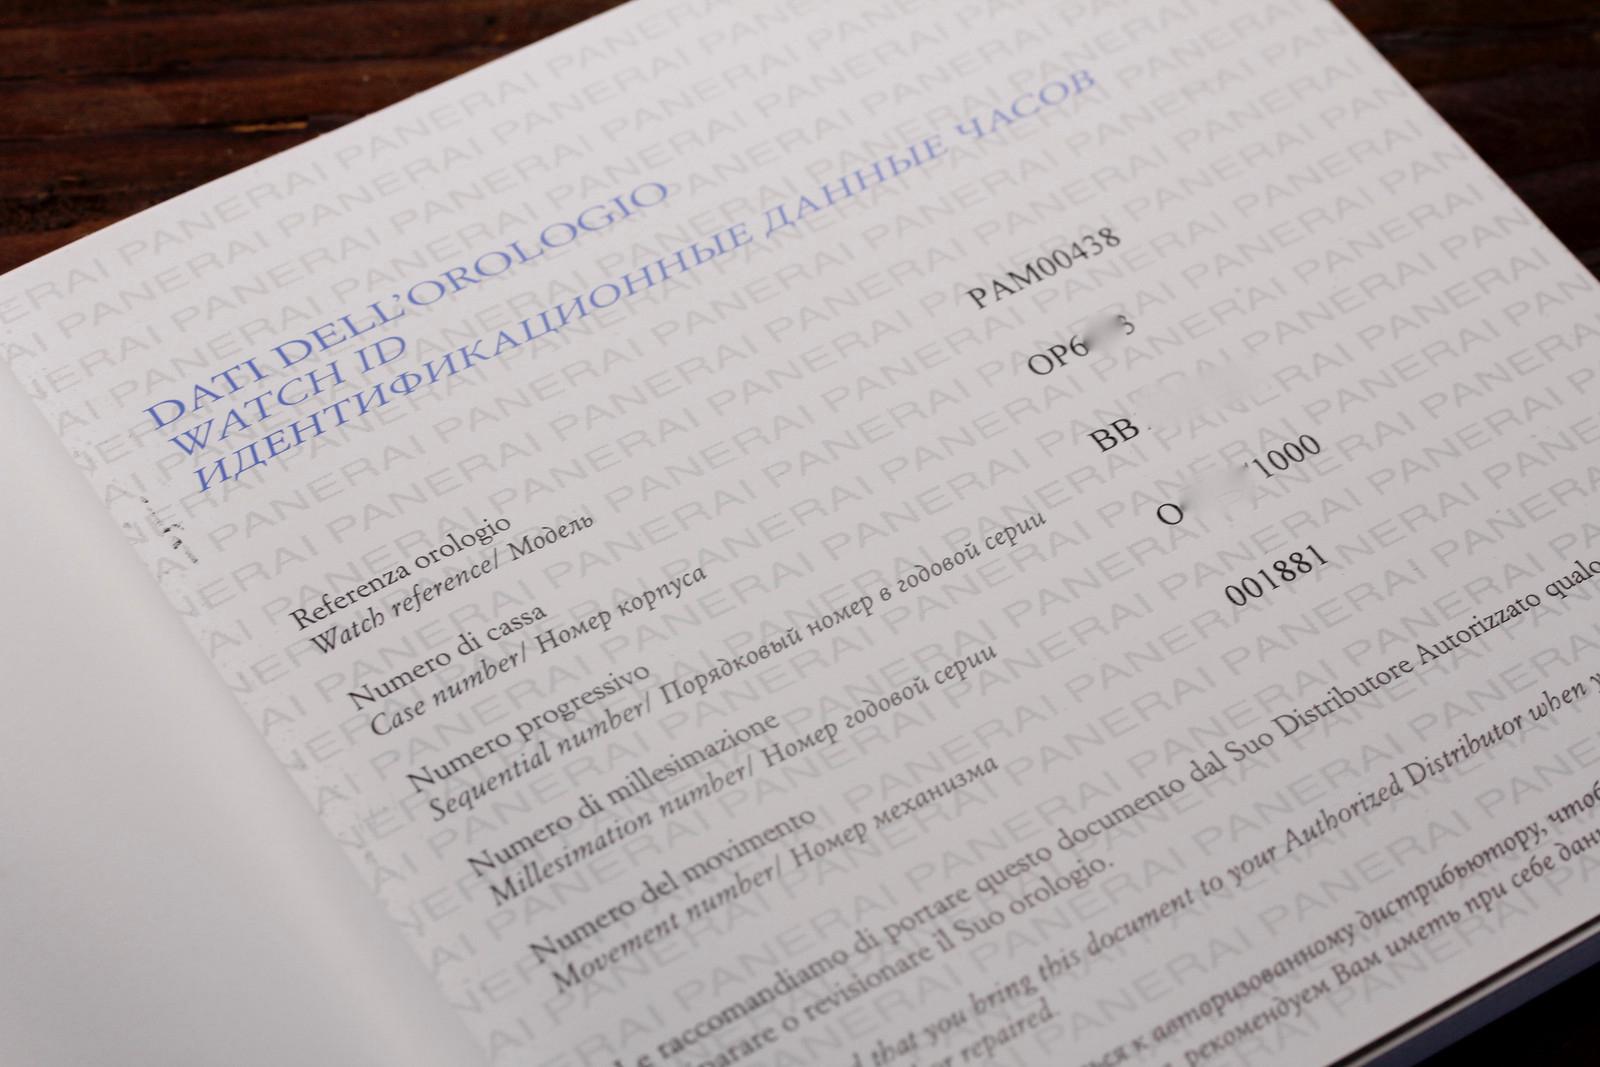 DATI DELL'OROLOGIO
WATCH ID
ИДЕНТИФИКАЦИОННЫЕ ДАННЫЕ ЧАСОВ
Referenza orologio
Watch reference/ Модель
PAM00438
Numero di cassa
Case number/ Номер корпуса
OP6 3
Numero progressivo
Sequential number/ Порядковый номер в годовой серии
BB
Numero di millesimazione
Millesimation number/ Номер годовой серии
O /1000
Numero del movimento
Movement number/ Номер механизма
001881
e raccomandiamo di portare questo documento dal Suo Distributore Autorizzato
o revisionare il Suo orologio.
that you bring this document to your Authorized Distributor when
or repaired.
к авторизованному дистрибьютору,
рекомендуем Вам иметь при себе